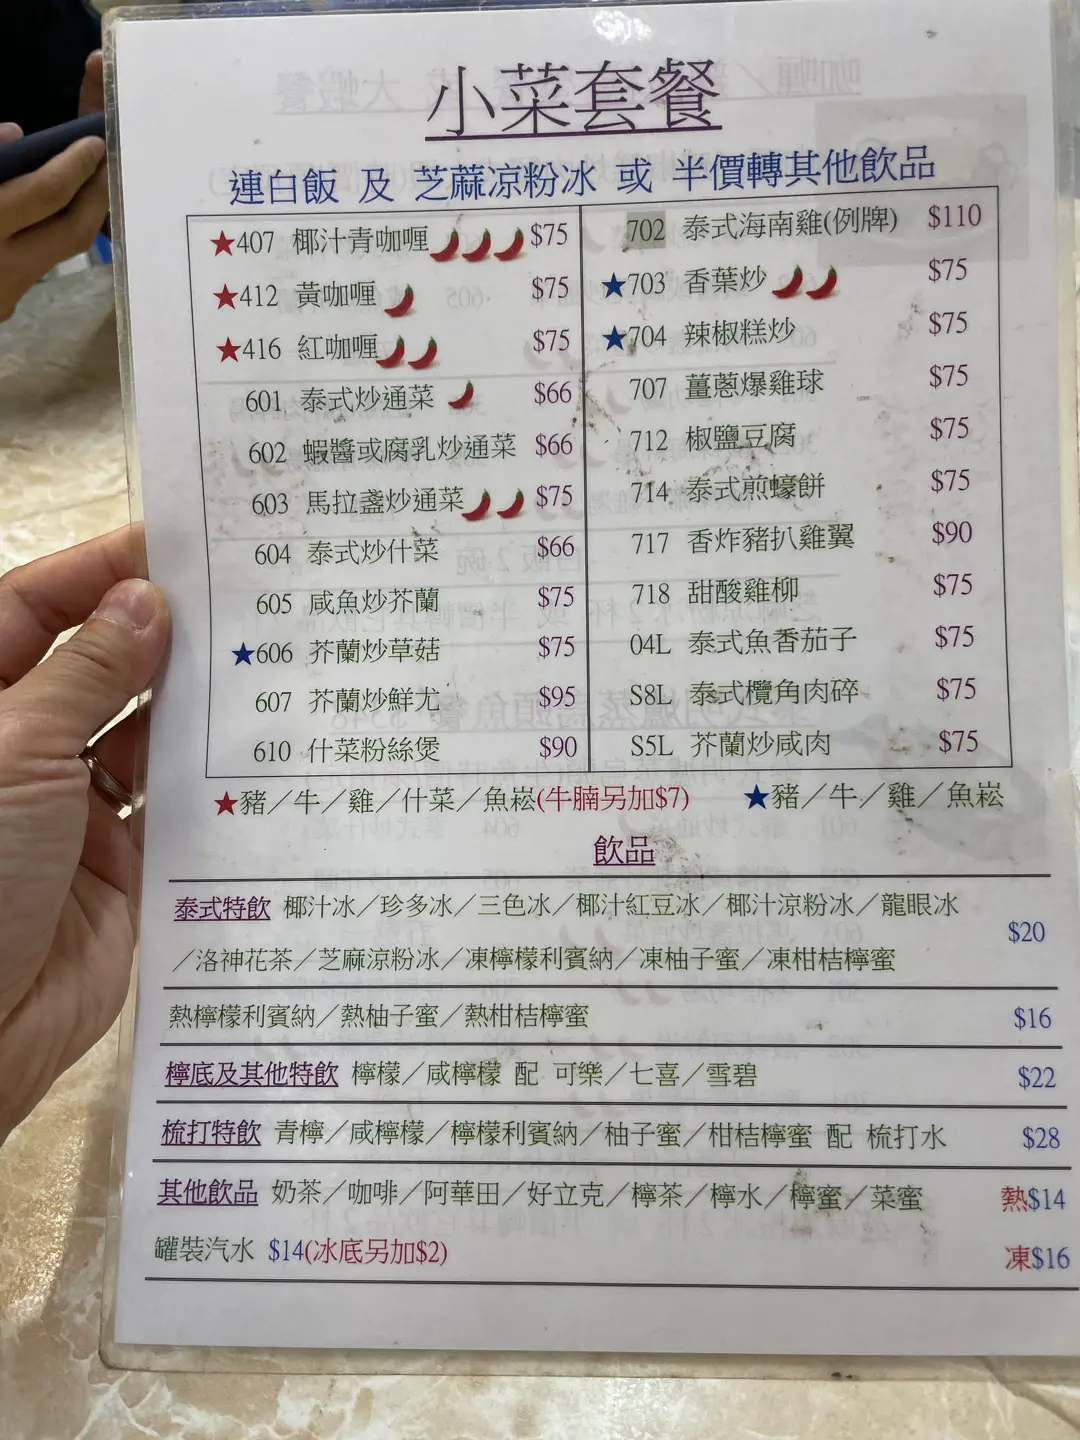 小菜套餐
連白飯 及 芝蔴凉粉冰 或 半價轉其他飲品
★407 椰汁青咖喱 $75
★412 黃咖喱 $75
★416 紅咖喱 $75
601 泰式炒通菜 $66
602 蝦醬或腐乳炒通菜 $66
603 馬拉盞炒通菜 $75
604 泰式炒什菜 $66
605 咸魚炒芥蘭 $75
★606 芥蘭炒草菇 $75
607 芥蘭炒鮮尤 $95
610 什菜粉絲煲 $90
702 泰式海南雞(例牌) $110
★703 香葉炒 $75
★704 辣椒糕炒 $75
707 薑蔥爆雞球 $75
712 椒鹽豆腐 $75
714 泰式煎蠔餅 $75
717 香炸豬扒雞翼 $90
718 甜酸雞柳 $75
04L 泰式魚香茄子 $75
S8L 泰式欖角肉碎 $75
S5L 芥蘭炒咸肉 $75
★豬／牛／雞／什菜／魚崧(牛腩另加$7) ★豬／牛／雞／魚崧
飲品
泰式特飲 椰汁冰／珍多冰／三色冰／椰汁紅豆冰／椰汁涼粉冰／龍眼冰
／洛神花茶／芝麻涼粉冰／凍檸檬利賓納／凍柚子蜜／凍柑桔檸蜜 $20
熱檸檬利賓納／熱柚子蜜／熱柑桔檸蜜 $16
檸底及其他特飲 檸檬／咸檸檬 配 可樂／七喜／雪碧 $22
梳打特飲 青檸／咸檸檬／檸檬利賓納／柚子蜜／柑桔檸蜜 配 梳打水 $28
其他飲品 奶茶／咖啡／阿華田／好立克／檸茶／檸水／檸蜜／菜蜜 熱$14
罐裝汽水 $14(冰底另加$2) 凍$16